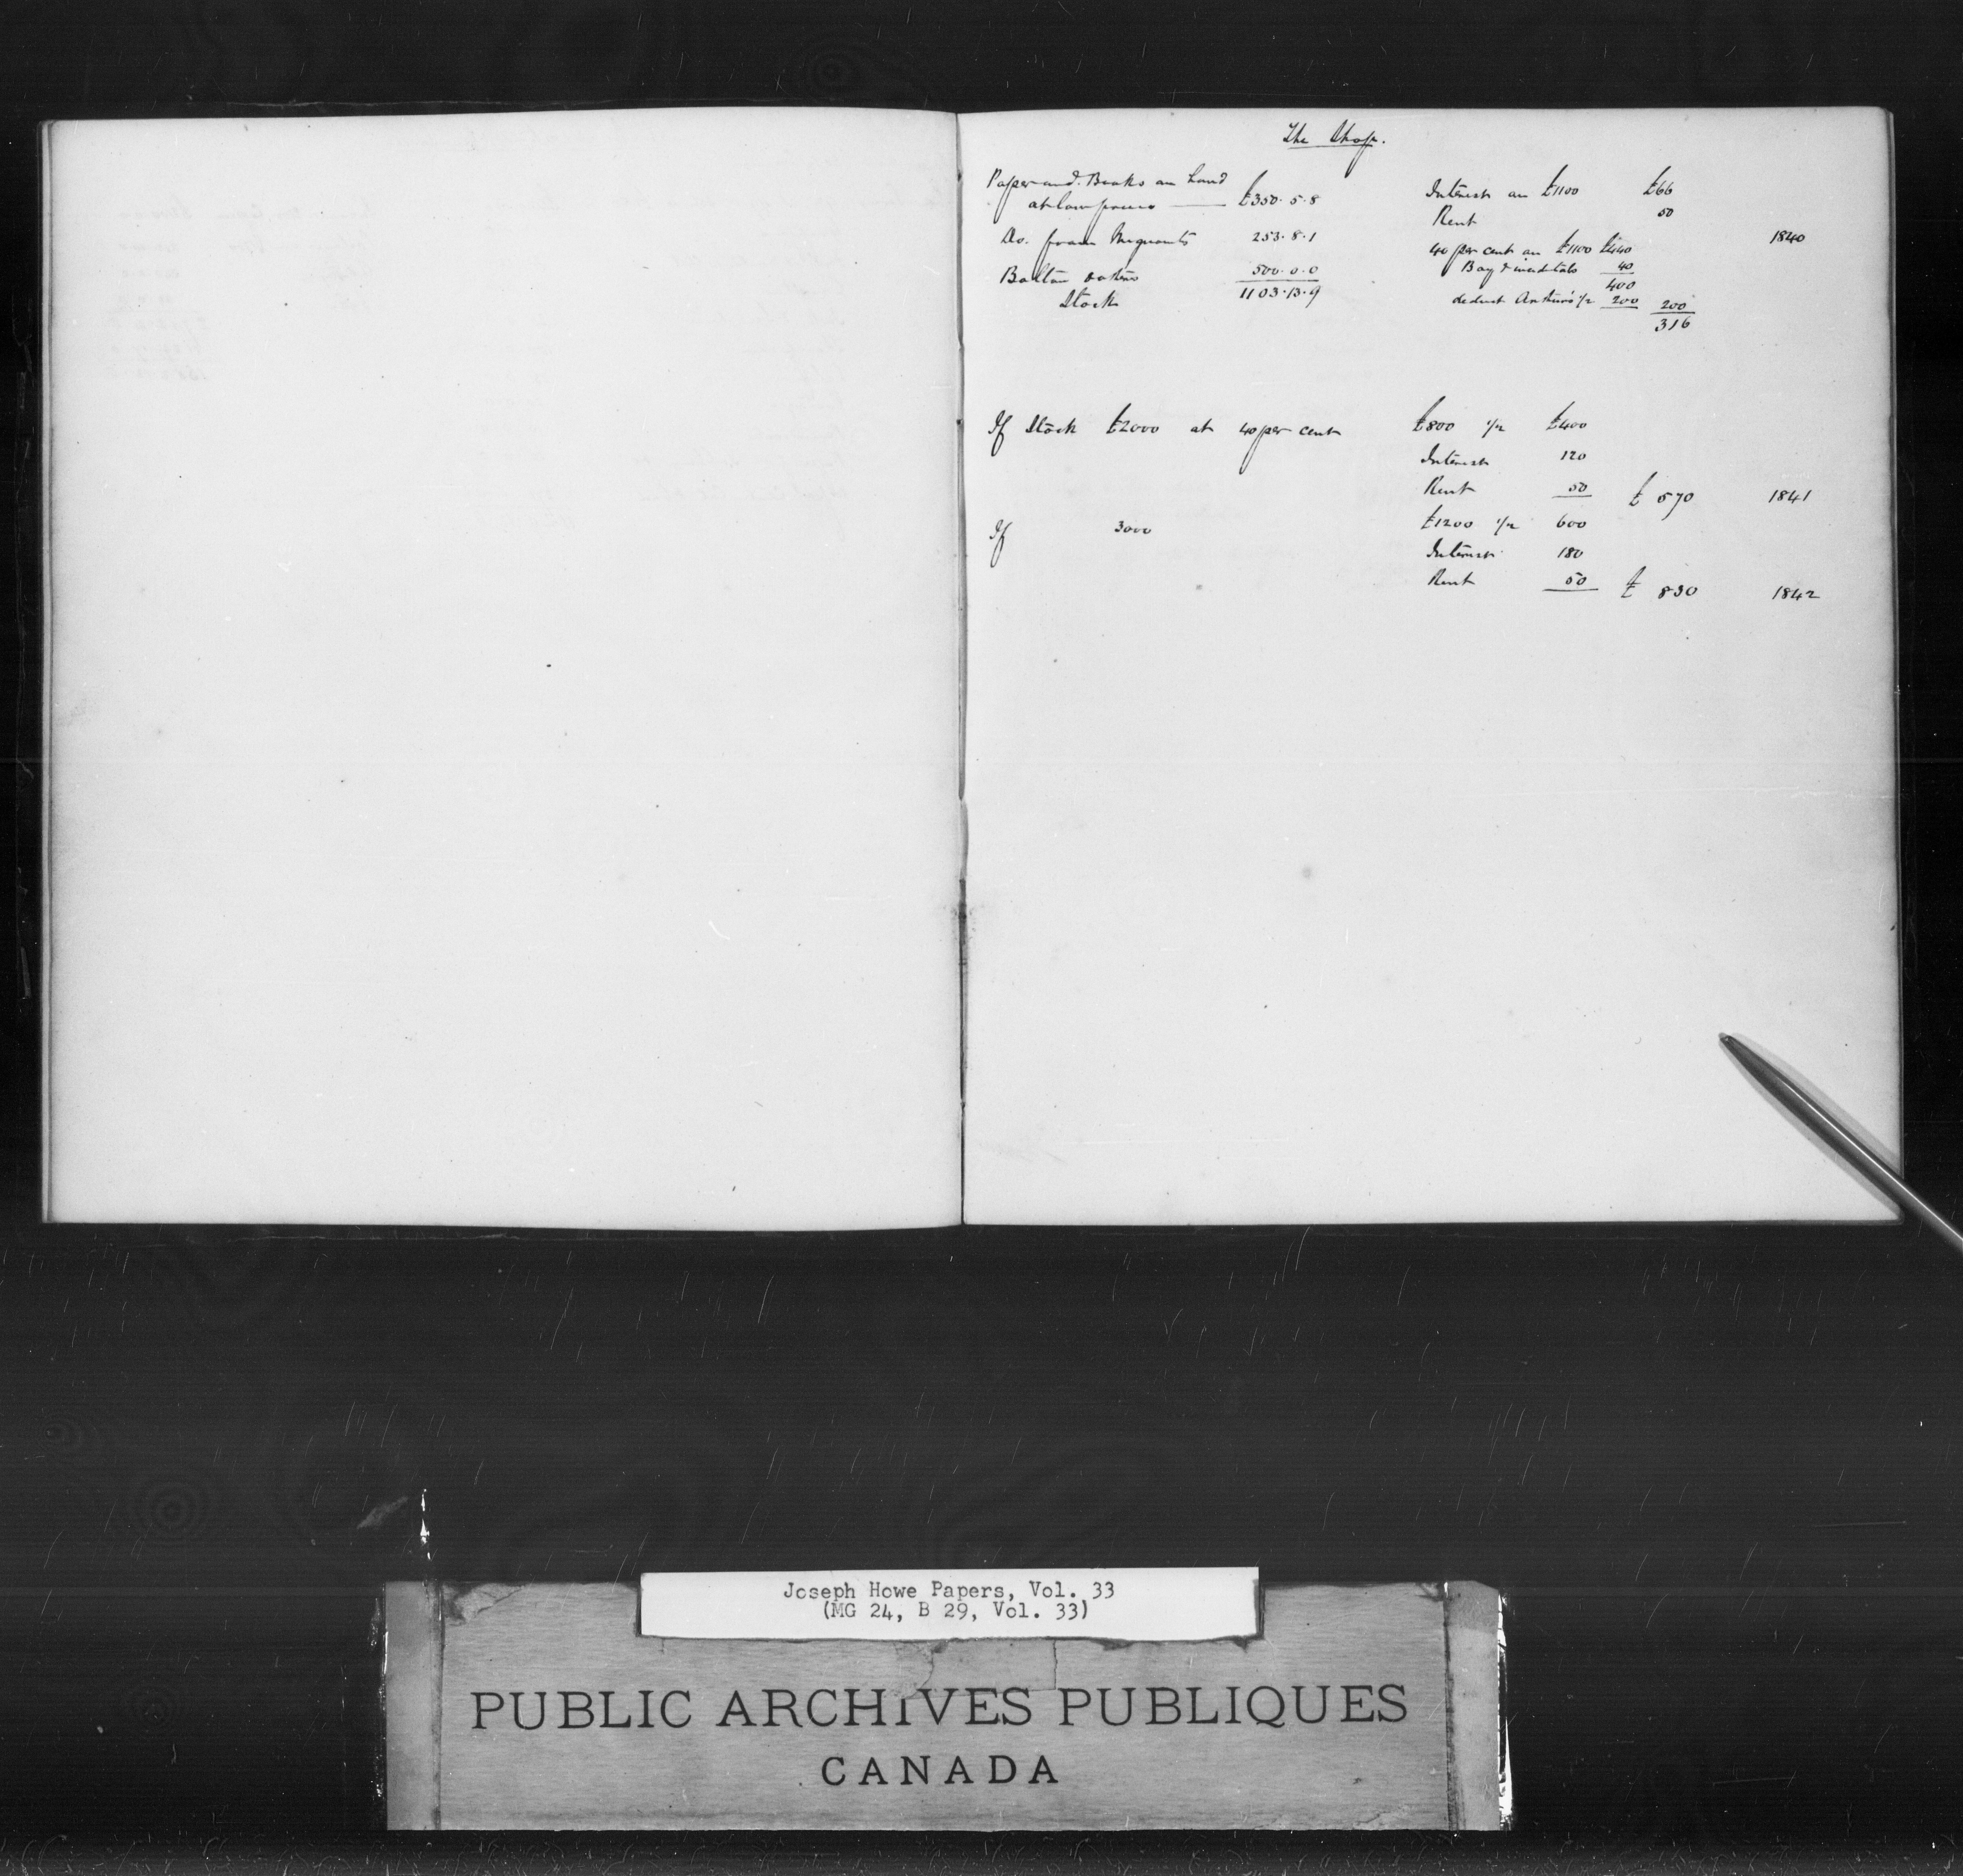 The Shop.
Paper and Books on hand
at low prices — £350.5.8
Do. from Mignowitz 253.8.1
Bolton & others 500.0.0
Stock 1103.13.9
Interest on £1100 £66
Rent 50
40 per cent on £1100 £440 1840
Boy & incidentals 40
400
deduct Arthur's 1/2 200 200
316
If Stock £2000 at 40 per cent £800 1/2 £400
Interest 120
Rent 50 £ 570 1841
If 3000 £1200 1/2 600
Interest 180
Rent 50 £ 830 1842
Joseph Howe Papers, Vol. 33
(MG 24, B 29, Vol. 33)
PUBLIC ARCHIVES PUBLIQUES
CANADA